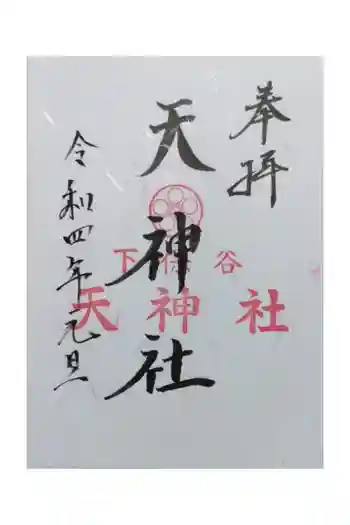 奉拝
天神社
令和四年元旦
下保谷
天神社